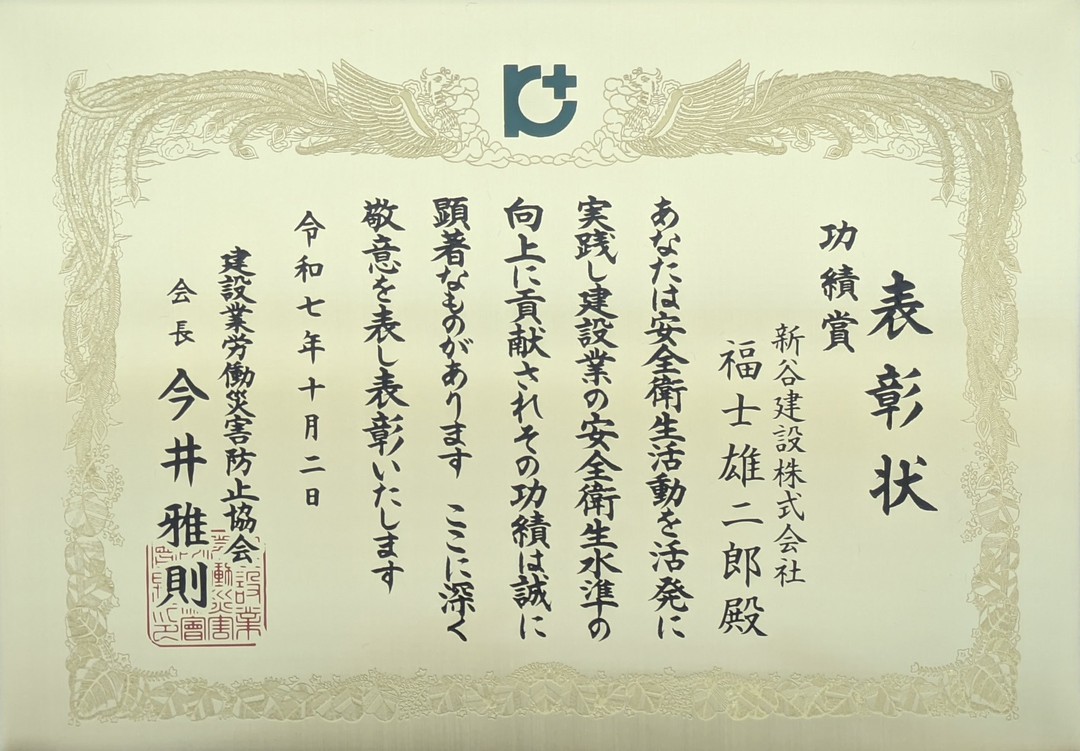 表彰状
功績賞
新谷建設株式会社
福士雄二郎殿
あなたは安全衛生活動を活発に
実践し建設業の安全衛生水準の
向上に貢献されその功績は誠に
顕著なものがあります ここに深く
敬意を表し表彰いたします
令和七年十月二日
建設業労働災害防止協会
会長 今井雅則